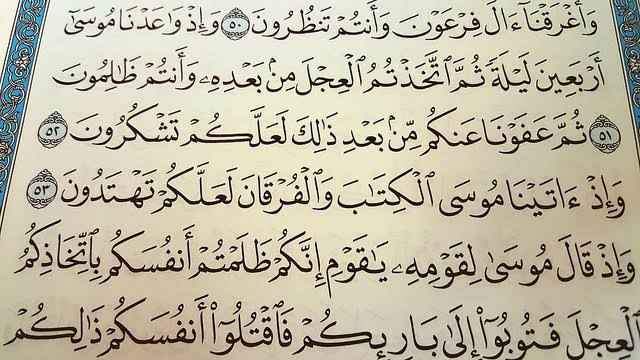 وَأَغۡرَقۡنَآ ءَالَ فِرۡعَوۡنَ وَأَنتُمۡ تَنظُرُونَ ٥٠ وَإِذۡ وَٰعَدۡنَا مُوسَىٰٓ
أَرۡبَعِينَ لَيۡلَةٗ ثُمَّ ٱتَّخَذۡتُمُ ٱلۡعِجۡلَ مِنۢ بَعۡدِهِۦ وَأَنتُمۡ ظَٰلِمُونَ
٥١ ثُمَّ عَفَوۡنَا عَنكُم مِّنۢ بَعۡدِ ذَٰلِكَ لَعَلَّكُمۡ تَشۡكُرُونَ ٥٢
وَإِذۡ ءَاتَيۡنَا مُوسَى ٱلۡكِتَٰبَ وَٱلۡفُرۡقَانَ لَعَلَّكُمۡ تَهۡتَدُونَ ٥٣
وَإِذۡ قَالَ مُوسَىٰ لِقَوۡمِهِۦ يَٰقَوۡمِ إِنَّكُمۡ ظَلَمۡتُمۡ أَنفُسَكُم بِٱتِّخَاذِكُمُ
ٱلۡعِجۡلَ فَتُوبُوٓاْ إِلَىٰ بَارِئِكُمۡ فَٱقۡتُلُوٓاْ أَنفُسَكُمۡ ذَٰلِكُمۡ